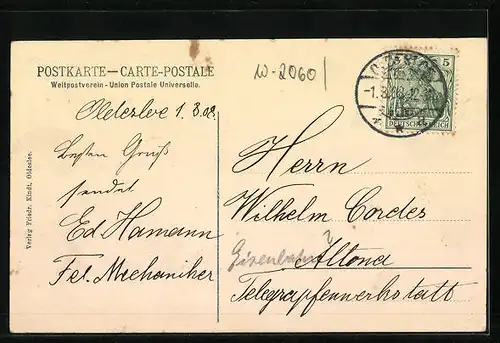 POSTKARTE — CARTE-POSTALE
Weltpostverein - Union Postale Universelle.
W-2060
5
DEUTSCHES REICH
Oldesloe 1.3.08
Besten Gruß
sendet
Ed Hamann
Tel. Mechaniker
Verlag Friedr. Kindt, Oldesloe.
Herrn
Wilhelm Cordes
Eisenbahn ?
Altona
Telegrapfenwerkstatt